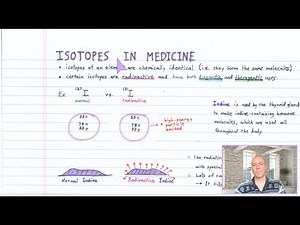 ISOTOPES IN MEDICINE
• isotopes of an element are chemically identical (i.e. they form the same molecules)
• certain isotopes are radioactive and have both diagnostic and therapeutic uses.
Ex. I vs. I
normal radioactive
high-energy particle emitted
Iodine is used by the thyroid gland
to make iodine-containing hormone
molecules, which are used all
throughout the body.
Normal Iodine
Radioactive Iodine
• The radiation
with special
• Lots of